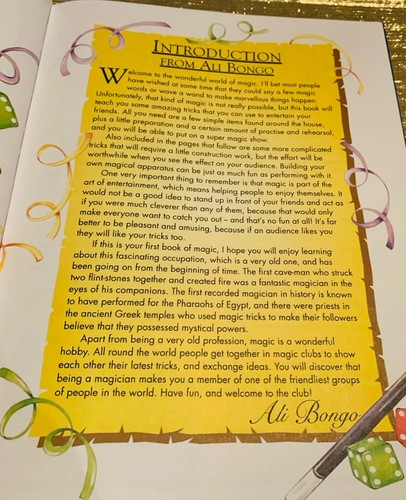 INTRODUCTION
FROM ALI BONGO
Welcome to the wonderful world of magic. I'll bet most people
have wished at some time that they could say a few magic
words or wave a wand to make marvellous things happen.
Unfortunately, that kind of magic is not really possible, but this book will
teach you some amazing tricks that you can use to entertain your
friends. All you need are a few simple items found around the house,
plus a little preparation and a certain amount of practise and rehearsal,
and you will be able to put on a super magic show.
Also included in the pages that follow are some more complicated
tricks that will require a little construction work, but the effort will be
worthwhile when you see the effect on your audience. Building your
own magical apparatus can be just as much fun as performing with it.
One very important thing to remember is that magic is part of the
art of entertainment, which means helping people to enjoy themselves. It
would not be a good idea to stand up in front of your friends and act as
if you were much cleverer than any of them, because that would only
make everyone want to catch you out – and that's no fun at all! It's far
better to be pleasant and amusing, because if an audience likes you
they will like your tricks too.
If this is your first book of magic, I hope you will enjoy learning
about this fascinating occupation, which is a very old one, and has
been going on from the beginning of time. The first cave-man who struck
two flint-stones together and created fire was a fantastic magician in the
eyes of his companions. The first recorded magician in history is known
to have performed for the Pharaohs of Egypt, and there were priests in
the ancient Greek temples who used magic tricks to make their followers
believe that they possessed mystical powers.
Apart from being a very old profession, magic is a wonderful
hobby. All round the world people get together in magic clubs to show
each other their latest tricks, and exchange ideas. You will discover that
being a magician makes you a member of one of the friendliest groups
of people in the world. Have fun, and welcome to the club!
Ali Bongo